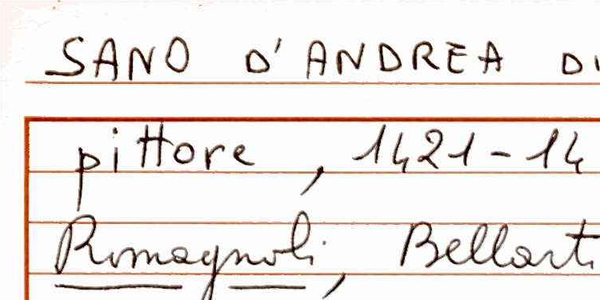 SANO D'ANDREA DI
pittore, 1421-14
Romagnoli, Bellarti